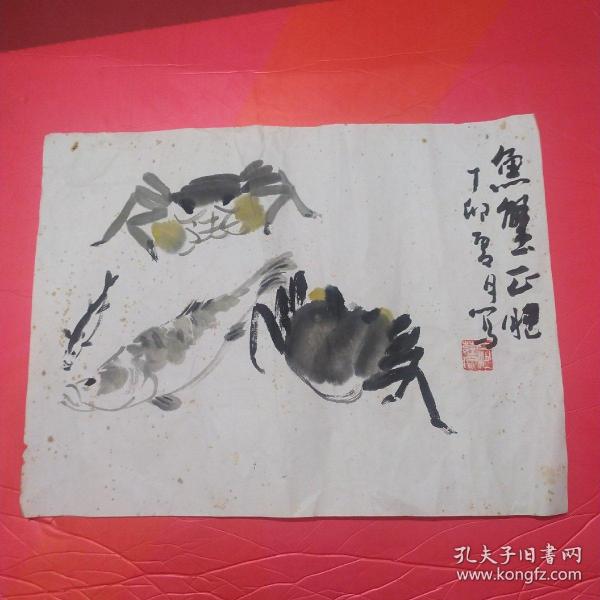 魚蟹正肥
丁卯
月寫
孔夫子旧书网
www.kongfz.com